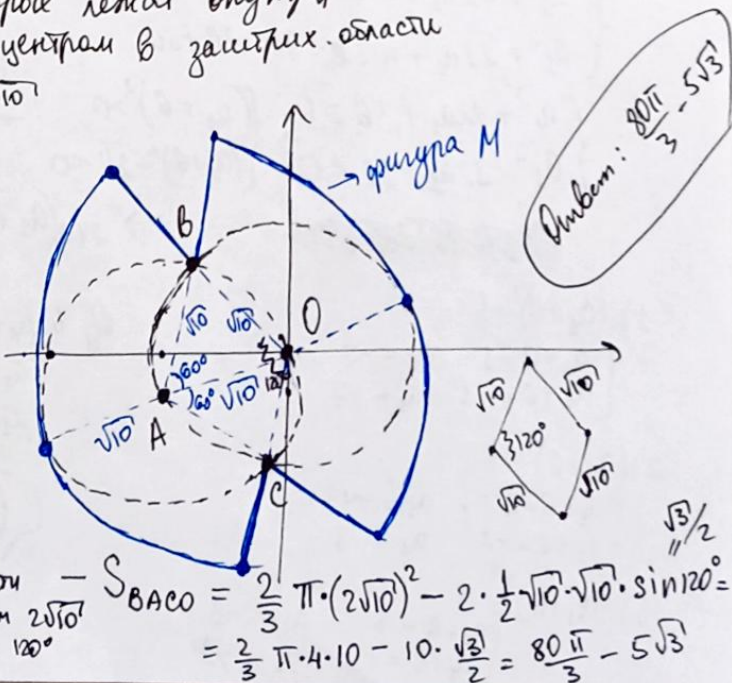 центром в заштрих. области
√10
→ фигура M
Ответ: 80π/3 - 5√3
B
√10 √10
O
60°
60° √10
√10
A
C
√10 √10
120°
√10 √10
√3/2
м 2√10
120°
- S_BACO = 2/3 π·(2√10)² - 2·1/2 √10·√10·sin120° =
= 2/3 π·4·10 - 10·√3/2 = 80π/3 - 5√3